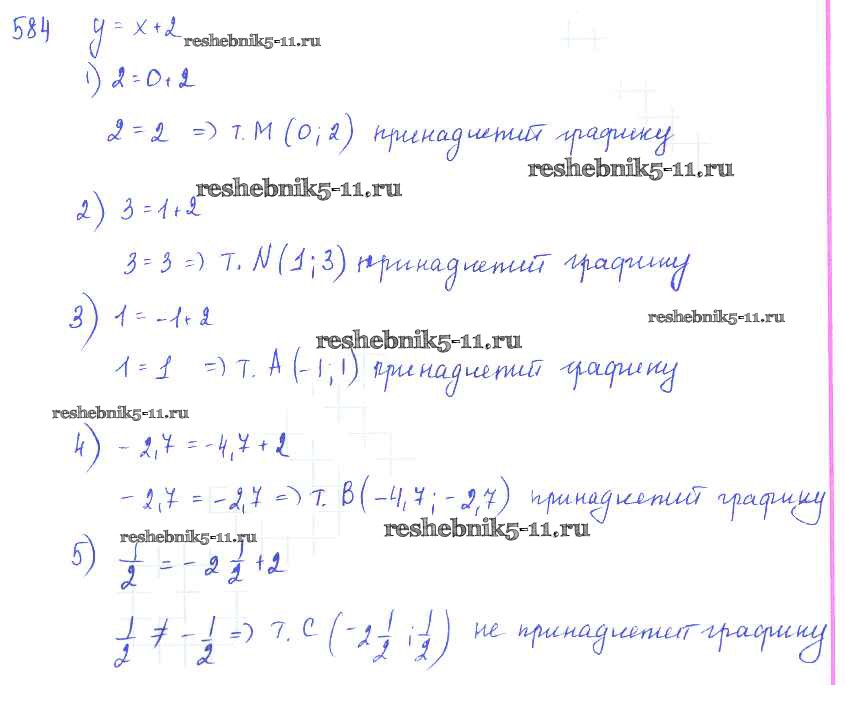 584 y = x + 2
reshebnik5-11.ru
1) 2 = 0 + 2
2 = 2 => т. М (0; 2) принадлежит графику
reshebnik5-11.ru
reshebnik5-11.ru
2) 3 = 1 + 2
3 = 3 => т. N (1; 3) принадлежит графику
3) 1 = -1 + 2
reshebnik5-11.ru
reshebnik5-11.ru
1 = 1 => т. А (-1; 1) принадлежит графику
reshebnik5-11.ru
4) -2,7 = -4,7 + 2
-2,7 = -2,7 => т. В (-4,7; -2,7) принадлежит графику
reshebnik5-11.ru
reshebnik5-11.ru
5) 1/2 = -2 1/2 + 2
1/2 ≠ -1/2 => т. С (-2 1/2; 1/2) не принадлежит графику